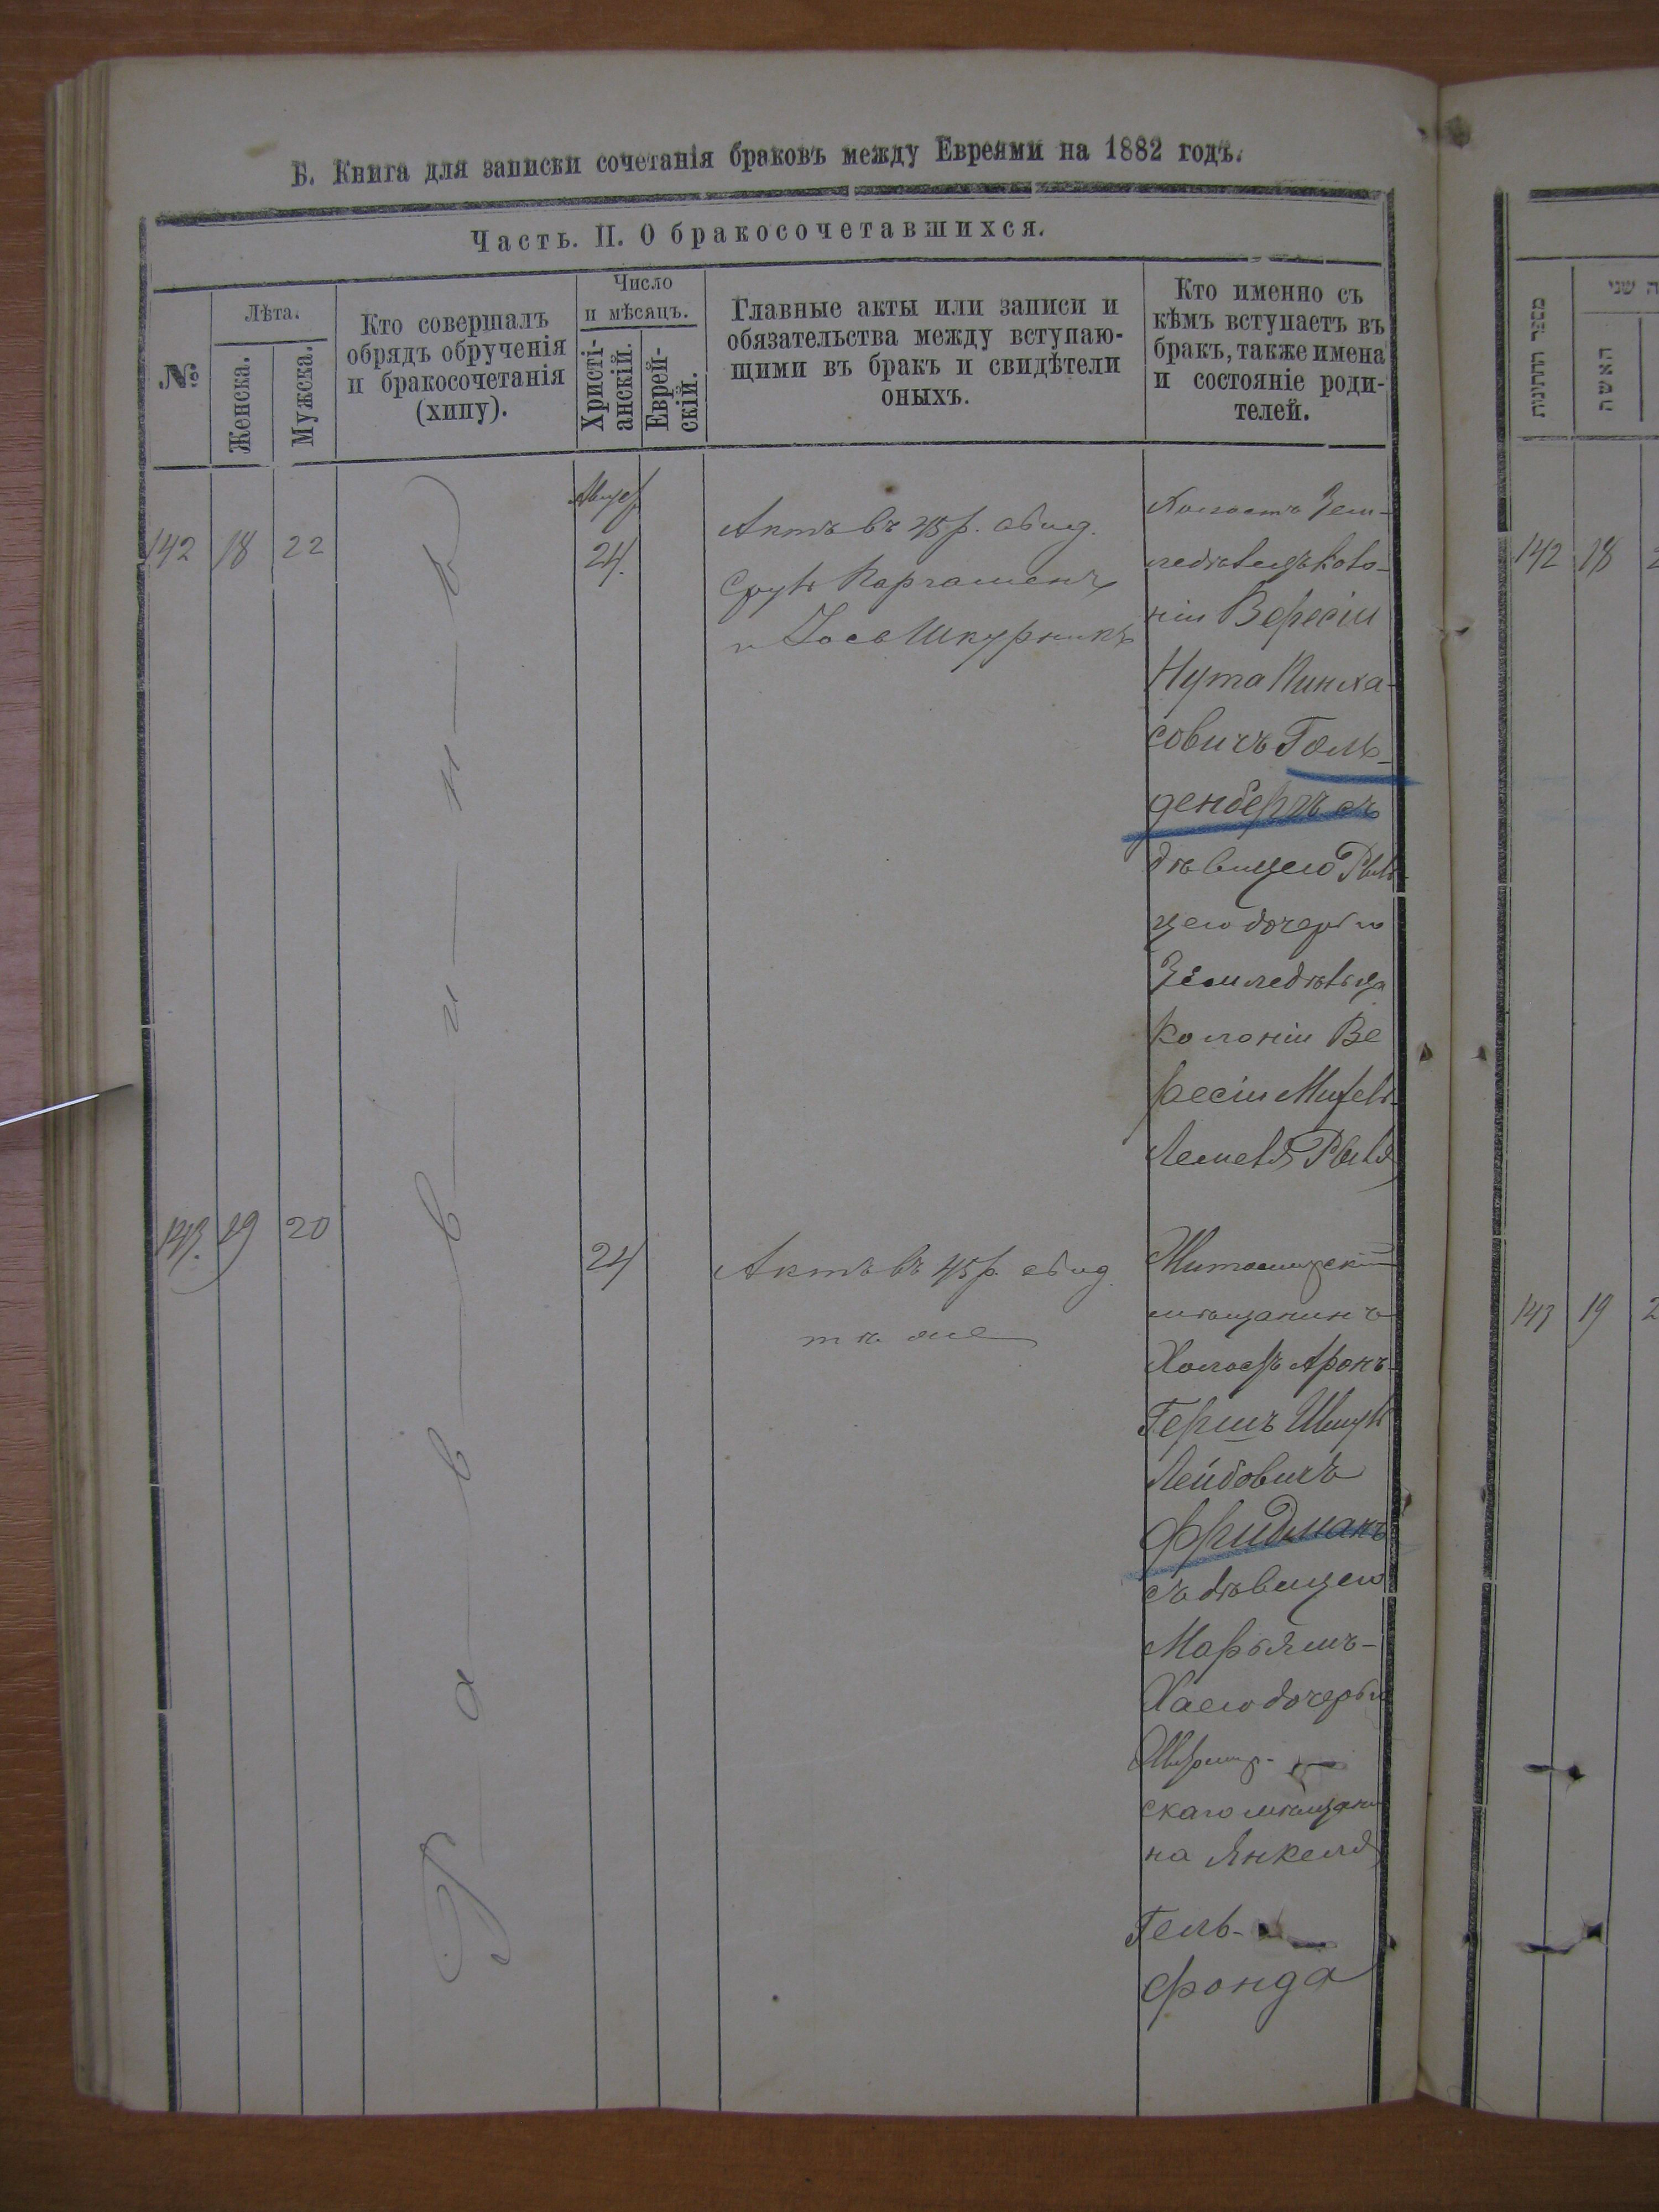 Б. Книга для записки сочетанія браковъ между Евреями на 1882 годъ.
Часть. II. О бракосочетавшихся.
№
Лѣта.
Женска.
Мужска.
Кто совершалъ
обрядъ обрученія
и бракосочетанія
(хипу).
Число
и мѣсяцъ.
Христі-
анскій.
Еврей-
скій.
Главные акты или записи и
обязательства между вступаю-
щими въ бракъ и свидѣтели
оныхъ.
Кто именно съ
кѣмъ вступаетъ въ
бракъ, также имена
и состояніе роди-
телей.
Раввинъ
142 18 22
24.
Актъ въ 45 р. свид.
и Іось Шкурникъ
Холостъ Зем-
ледѣлецъ коло-
ніи Вересіи
Нута Пинха-
совичъ Голь-
денбергъ съ
дѣвицею
цею дочерью
Земледѣльца
колоніи Ве
ресіи
143. 19 20
24
Актъ въ 45 р. свид.
тѣ же
Житомирскій
мѣщанинъ
Холостъ Аронъ-
Гершъ Шмуль
Лейбовичъ
Фридманъ
съ дѣвицею
Марьямъ-
Хаею дочерью
скаго мѣщани
на Янкеля
Гель-
фонда
מספר החתונות
האשה
142 18
143 19